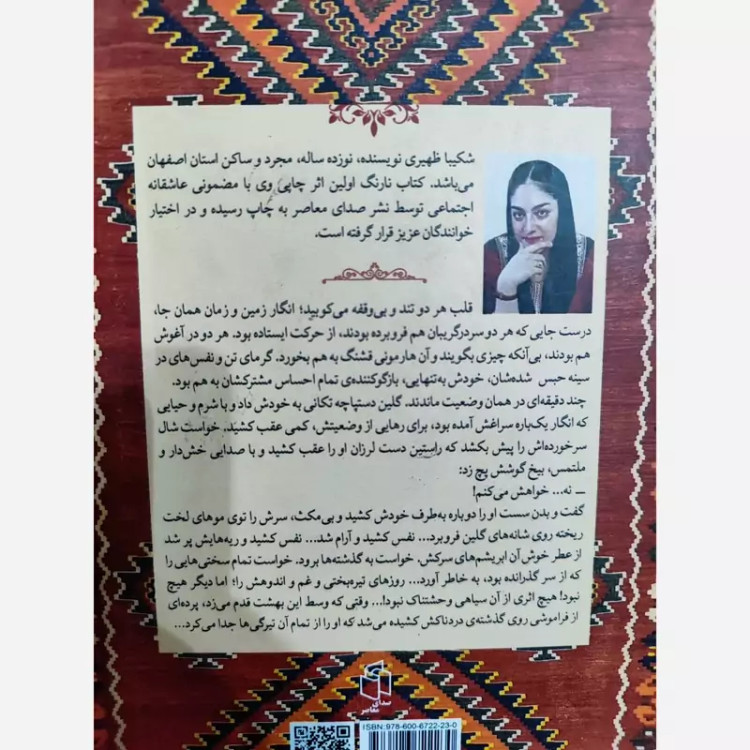 شکیبا ظهیری نویسنده، نوزده ساله، مجرد و ساکن استان اصفهان
می‌باشد. کتاب نارنگ اولین اثر چاپی وی با مضمونی عاشقانه
اجتماعی توسط نشر صدای معاصر به چاپ رسیده و در اختیار
خوانندگان عزیز قرار گرفته است.
قلب هر دو تند و بی‌وقفه می‌کوبید؛ انگار زمین و زمان همان جا،
درست جایی که هر دو سر درگریبان هم فروبرده بودند، از حرکت ایستاده بود. هر دو در آغوش
هم بودند، بی‌آنکه چیزی بگویند و آن هارمونی قشنگ به هم بخورد. گرمای تن و نفس‌های در
سینه حبس شده‌شان، خودش به‌تنهایی، بازگوکننده‌ی تمام احساس مشترکشان به هم بود.
چند دقیقه‌ای در همان وضعیت ماندند. گلین دستپاچه تکانی به خودش داد و با شرم و حیایی
که انگار یک‌باره سراغش آمده بود، برای رهایی از وضعیتش، کمی عقب کشید. خواست شال
سرخورده‌اش را پیش بکشد که راستین دست لرزان او را عقب کشید و با صدایی خش‌دار و
ملتمس، بیخ گوشش پچ زد:
ـ نه... خواهش می‌کنم!
گفت و بدن سست او را دوباره به‌طرف خودش کشید و بی‌مکث، سرش را توی موهای لخت
ریخته روی شانه‌های گلین فروبرد... نفس کشید و آرام شد... نفس کشید و ریه‌هایش پر شد
از عطر خوش آن ابریشم‌های سرکش. خواست به گذشته‌ها برود. خواست تمام سختی‌هایی را
که از سر گذرانده بود، به خاطر آورد... روزهای تیره‌بختی و غم و اندوهش را؛ اما دیگر هیچ
نبود! هیچ اثری از آن سیاهی وحشتناک نبود!... وقتی که وسط این بهشت قدم می‌زد، پرده‌ای
از فراموشی روی گذشته‌ی دردناکش کشیده می‌شد که او را از تمام آن تیرگی‌ها جدا می‌کرد...
صدای
معاصر
ISBN:978-600-6722-23-0